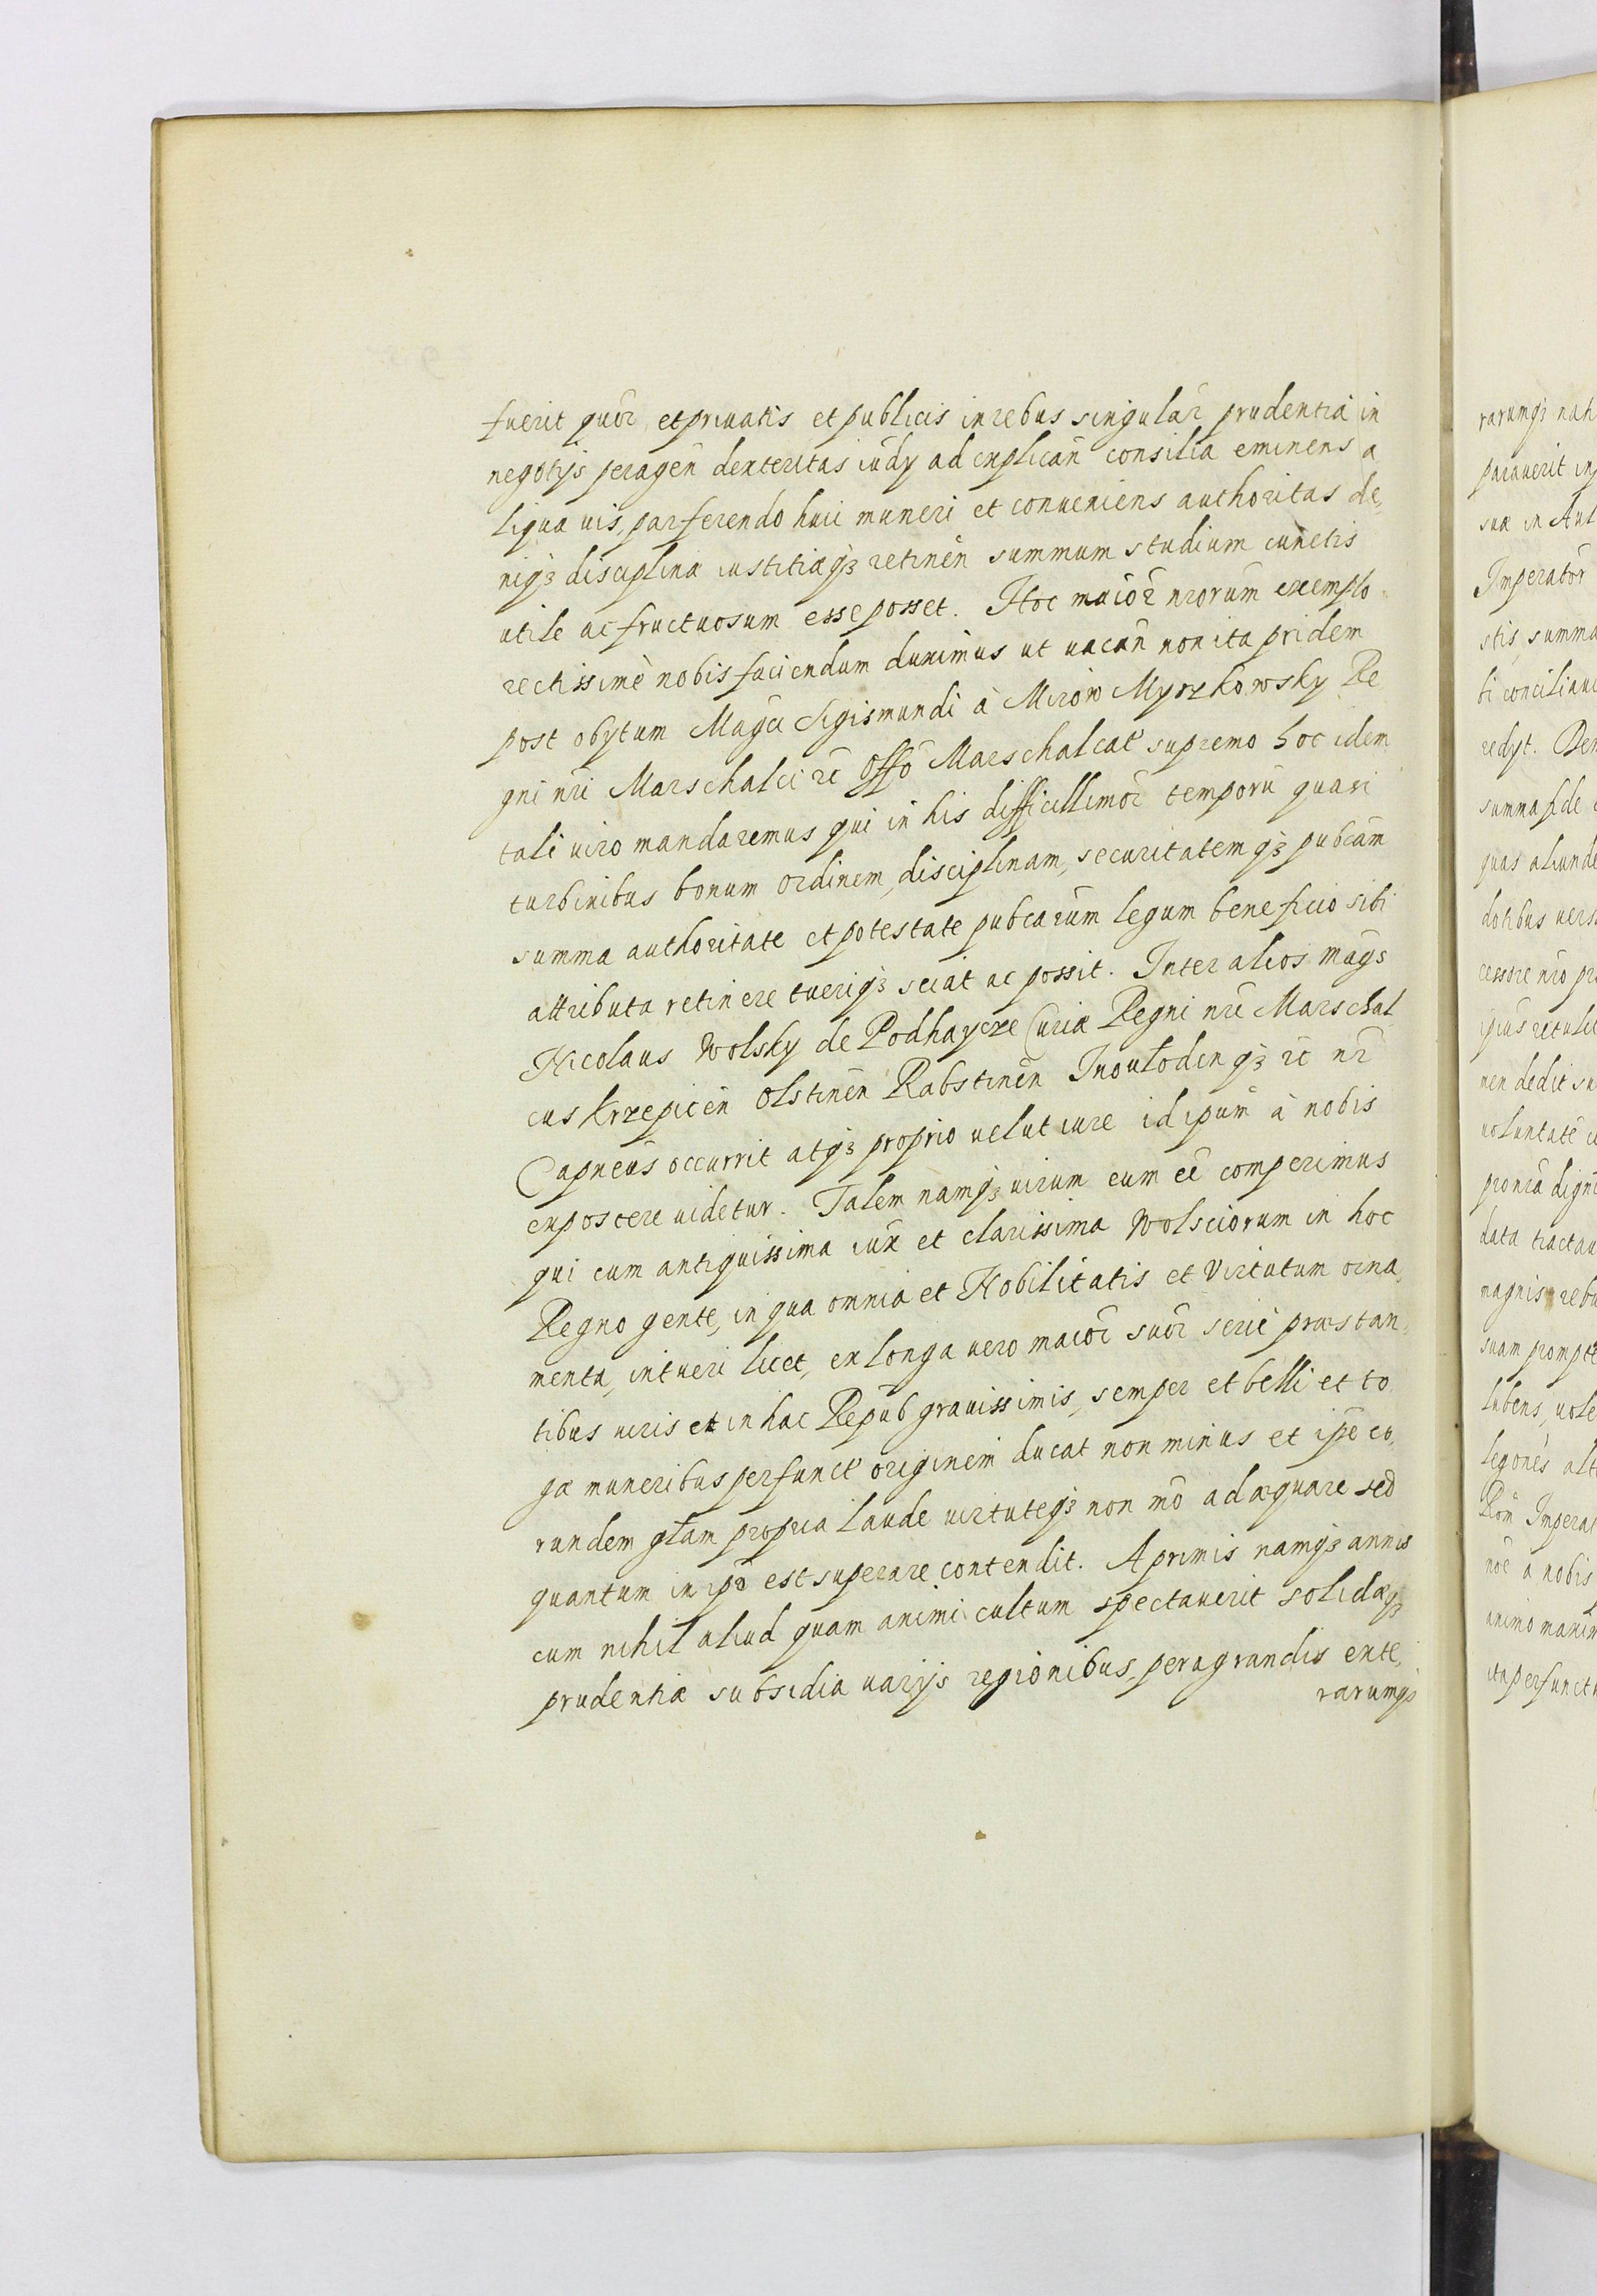 fuerit quōr et priuatis et publicis in rebus singulār prudentia in
negotijs peragēn dexteritas iūdy ad explicān consilia eminens a
liqua uis, par ferendo huic muneri et conueniens authoritas de,
niqȝ disciplinæ iustitiæqȝ retinēn summum studium cunctis
utile ac fructuosum esse posset. Hoc maiōr nrorūm exemplo
rectissimè nobis faciendum duximus ut uacān non ita pridem
post obytum Magci Sigismundi à Mirow Myszkowsky Re
gni nri Marschalci rc Offo Marschalcat supremo hoc idem
tali uiro mandaremus qui in his difficillimōr temporū quasi
turbinibus bonum ordinem, disciplinam, securitatemqȝ pubcam
summa authoritate et potestate pubcarūm legum beneficio sibi
attributa retinere tueriqȝ sciat ac possit. Inter alios mags
Nicolaus Wolsky de Podhaycze Curiæ Regni nri Marschal
cus Krzepicēn Olstinēn Rabstinēn Inoulodenqȝ rc nr
Capneus occurrit atqȝ proprio uelut iure id ipūm à nobis
exposcere uidetur. Talem namqȝ uirum eum eē comperimus
qui cum antiquissima iux et clarissima Wolsciorum in hoc
Regno gente, in qua omnia et Nobilitatis et Virtutum orna,
menta, intueri licet, ex longa uero maiōr suōr serie præstan,
tibus uiris et in hac Repūb grauissimis, semper et belli et to
gæ muneribus perfunct originem ducat non minus et ipe eo,
rundem glam propria laude uirtuteqȝ non mō adæquare sed
quantum in ipo est superare contendit. A primis namqȝ annis
cum nihil aliud quam animi cultum spectauerit solidæqȝ
prudentiæ subsidia uarijs regionibus, peragrandis exte,
rarumqȝ
rarumqȝ nat
parauerit in
suæ in Aul
Imperator
stis, summa
bi conciliaui
redyt.
summa fide
quas aliunde
dotibus uers
cessore nro pr
ipius retulit
nen dedit su
uoluntatē
pro nra digni
data tractau
magnis rebu
suam prompte
lubens, uole
legones alt
Rom Imperat
noē a nobis
animo maxim
ita perfunct